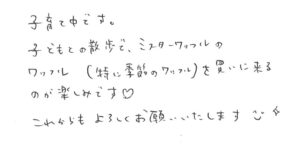 子育て中です。
子どもとの散歩で、ミスターワッフルの
ワッフル（特に季節のワッフル）を買いに来る
のが楽しみです♡
これからもよろしくお願いいたします